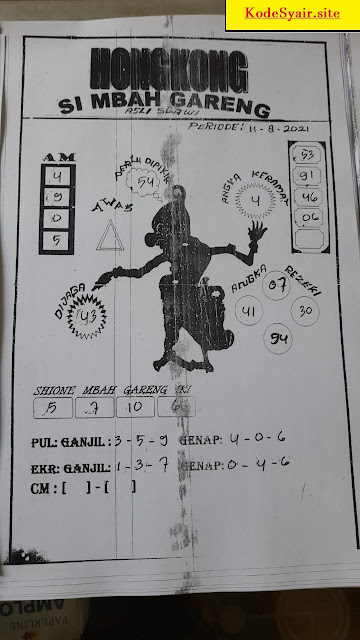 KodeSyair.site
HONGKONG
SI MBAH GARENG
ASLI SLAWI
PERIODE: 11-8-2021
AM
4
9
0
5
PERLU DIPIKIR
54
AWAS
ANGKA KERAMAT
4
53
91
46
06
DIJAGA
43
ANGKA REZEKI
07
41
30
94
SHIONE MBAH GARENG IKI
5 7 10 6
PUL: GANJIL: 3-5-9 GENAP: 4-0-6
EKR: GANJIL: 1-3-7 GENAP: 0-4-6
CM : [ ] - [ ]
PAPERLINE